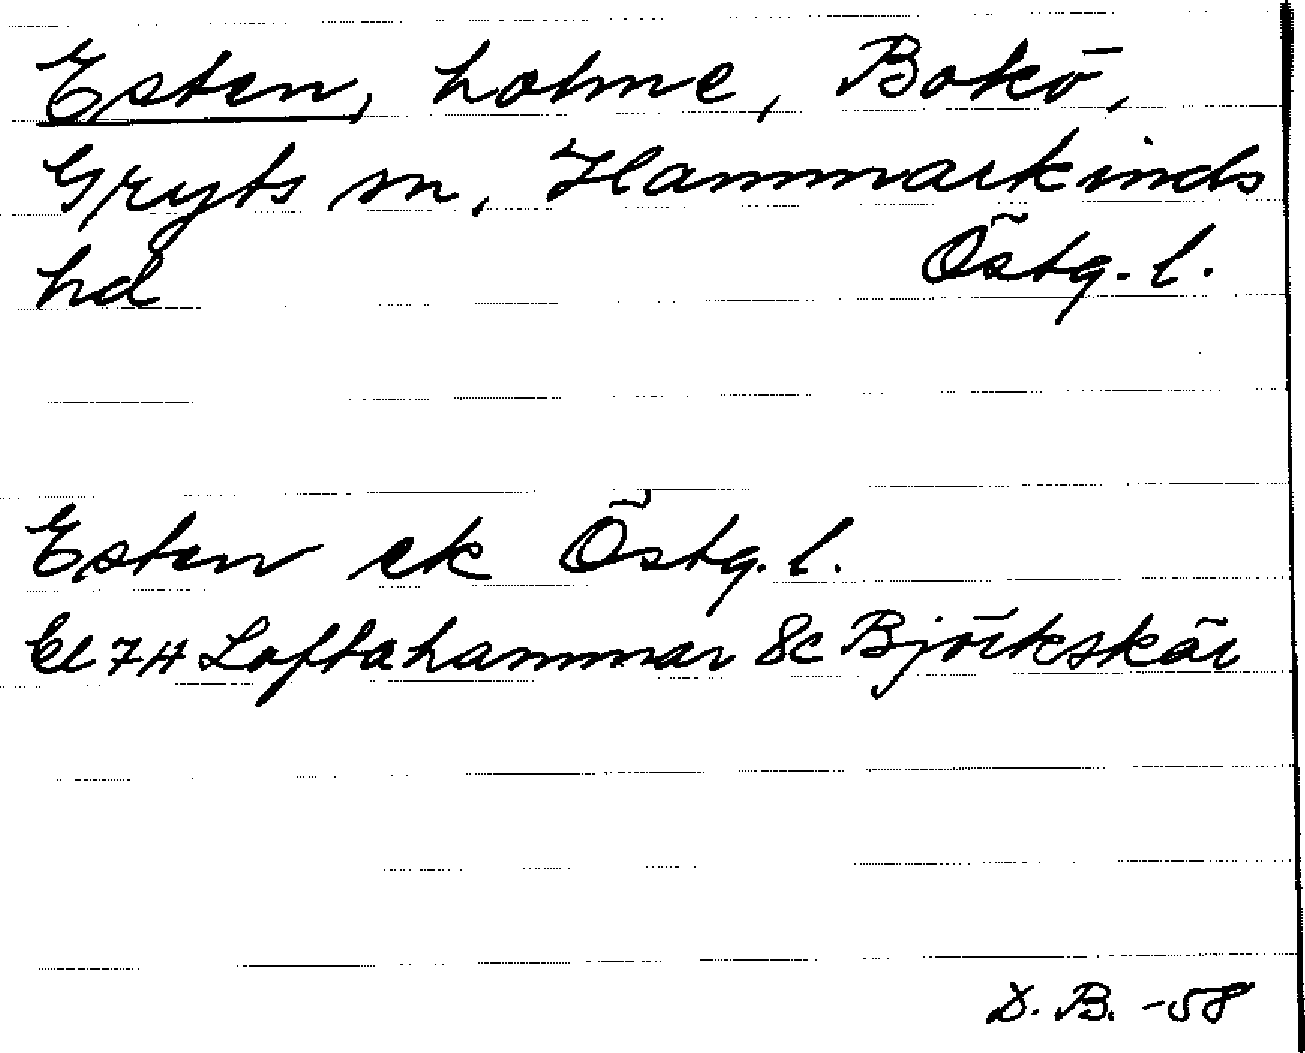 Esten, holme, Bokö,
Gryts sn, Hammarkinds
hd Östg. l.
Esten ek Östg. l.
El 74 Loftahammar 8c Björkskär
D. B. -58